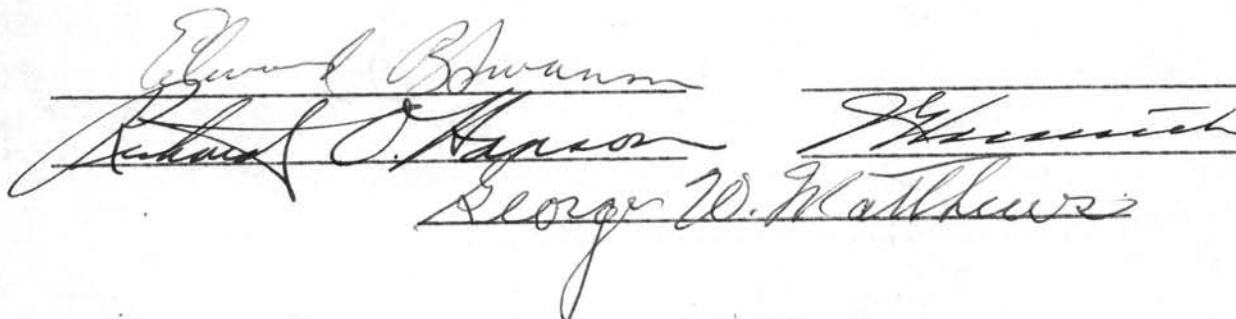 Edward B Swanson
Richard O. Hanson
George W. Matthews